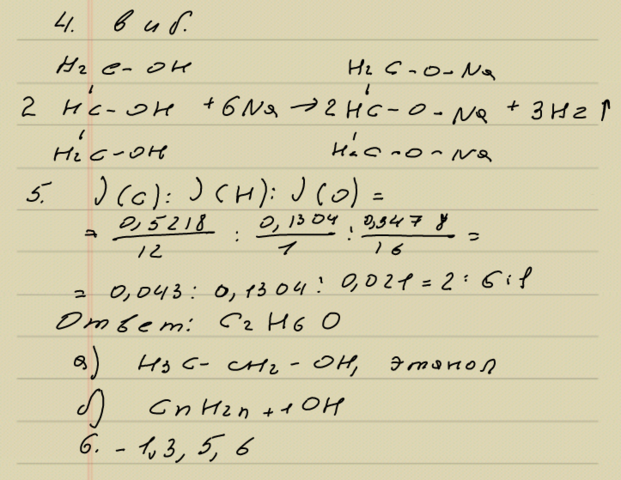 4. в и б.
H2 C - OH H2 C - O - Na
2 HC - OH + 6Na → 2 HC - O - Na + 3H2 ↑
H2 C - OH H2 C - O - Na
5. ν(C) : ν(H) : ν(O) =
= 0,5218/12 : 0,1304/1 : 0,3478/16 =
= 0,043 : 0,1304 : 0,021 = 2 : 6 : 1
Ответ: C2 H6 O
а) H3 C - CH2 - OH, этанол
б) Cn H2n + 1 OH
6. - 1, 3, 5, 6